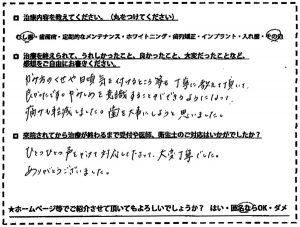 □ 治療内容を教えてください。(丸をつけてください)
むし歯・歯周病・定期的なメンテナンス・ホワイトニング・歯列矯正・インプラント・入れ歯・その他
□ 治療を終えられて、うれしかったこと、良かったこと、大変だったことなど、
感想をご自由にお書きください。
かみ方のくせや日頃気を付けるところ等も丁寧に教えて頂いて、
を意識することができるようになって
痛みも軽減しました。歯を大事にしようと思いました。
□ 来院されてから治療が終わるまで受付や医師、衛生士のご対応はいかがでしたか?
ひとつひとつ声をかけて対応して下さって、大変丁寧でした。
ありがとうございました。
★ホームページ等でご紹介させて頂いてもよろしいでしょうか? はい・匿名ならOK・ダメ